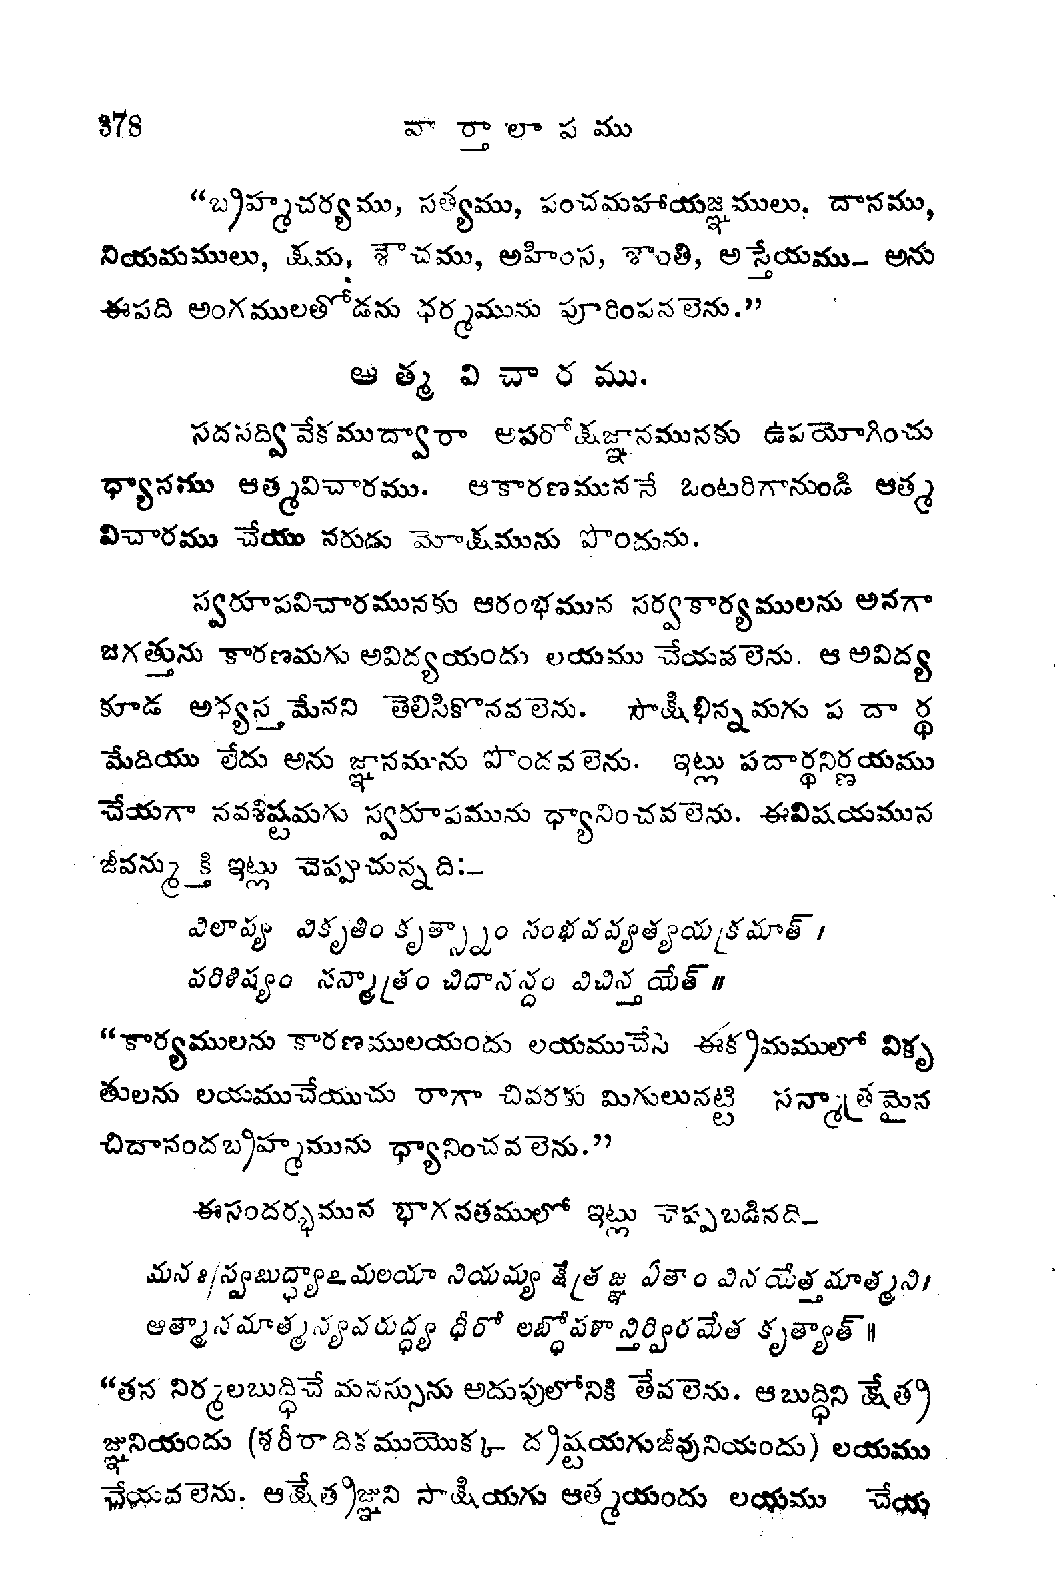 378 వా ర్తా లా ప ము
“బ్రహ్మచర్యము, సత్యము, పంచమహాయజ్ఞములు, దానము,
నియమములు, క్షమ, శౌచము, అహింస, శాంతి, అస్తేయము— అను
ఈపది అంగములతోడను ధర్మమును పూరింపనలెను.”
ఆ త్మ వి చా ర ము.
సదసద్వివేకముద్వారా అపరోక్షజ్ఞానమునకు ఉపయోగించు
ధ్యానము ఆత్మవిచారము. ఆకారణముననే ఒంటరిగానుండి ఆత్మ
విచారము చేయు నరుడు మోక్షమును పొందును.
స్వరూపవిచారమునకు ఆరంభమున సర్వకార్యములను అనగా
జగత్తును కారణమగు అవిద్యయందు లయము చేయవలెను. ఆ అవిద్య
కూడ అధ్యస్తమేనని తెలిసికొనవలెను. సాక్షిభిన్నమగు ప దా ర్థ
మేదియు లేదు అను జ్ఞానమును పొందవలెను. ఇట్లు పదార్థనిర్ణయము
చేయగా నవశిష్టమగు స్వరూపమును ధ్యానించవలెను. ఈవిషయమున
జీవన్ముక్తి ఇట్లు చెప్పుచున్నది:—
విలాప్య వికృతిం కృత్స్నాం సంభవవ్యత్యయక్రమాత్ ।
పరిశిష్యం నన్మాత్రం చిదానన్దం విచిన్తయేత్ ॥
“కార్యములను కారణములయందు లయముచేసి ఈక్రమములో వికృ
తులను లయముచేయుచు రాగా చివరకు మిగులునట్టి సన్మాత్రమైన
చిదానందబ్రహ్మమును ధ్యానించవలెను.”
ఈసందర్భమున భాగవతములో ఇట్లు చెప్పబడినది—
మనః స్వబుద్ధ్యాఽమలయా నియమ్య క్షేత్రజ్ఞ ఏతాం వినయేత్తమాత్మని।
ఆత్మానమాత్మన్యవరుద్ధ్య ధీరో లబ్ధోపశాన్తిర్విరమేత కృత్యాత్ ॥
“తన నిర్మలబుద్ధిచే మనస్సును అదుపులోనికి తేవలెను. ఆబుద్ధిని క్షేత్ర
జ్ఞునియందు (శరీరాదికముయొక్క ద్రష్టయగుజీవునియందు) లయము
చేయవలెను. ఆక్షేత్రజ్ఞుని సాక్షియగు ఆత్మయందు లయము చేయ